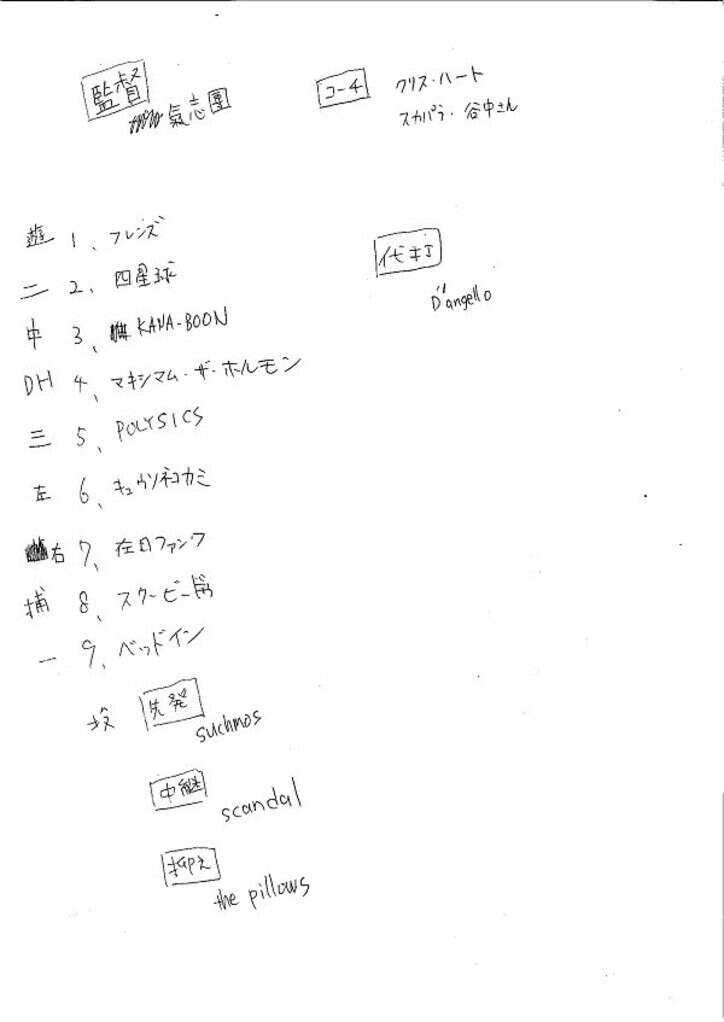 監督
氣志團
コーチ
クリス・ハート
スカパラ・谷中さん
遊 1、フレンズ
二 2、四星球
中 3、KANA-BOON
DH 4、マキシマム・ザ・ホルモン
三 5、POLYSICS
左 6、キュウソネコカミ
右 7、在日ファンク
捕 8、スクービー
一 9、ベッドイン
代打
D'angello
投 先発
suchmos
中継
scandal
抑え
the pillows